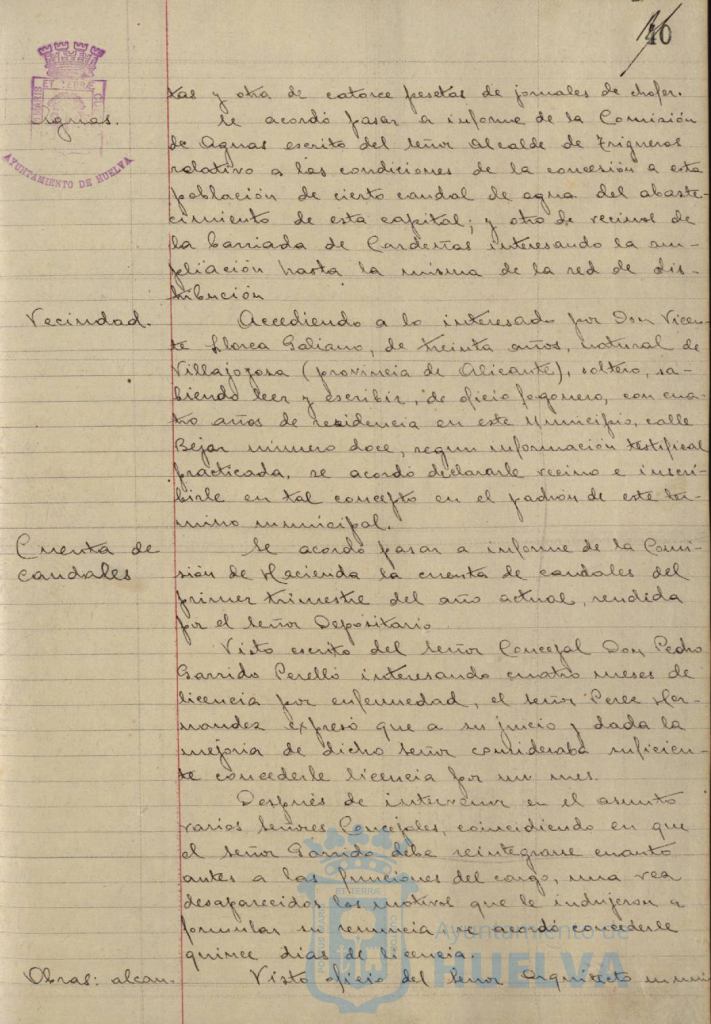 40
tas y otra de catorce pesetas de jornales de chofer.
Aguas.
Se acordó pasar a informe de la Comisión
de Aguas escrito del señor Alcalde de Trigueros
relativo a las condiciones de la concesión a esta
población de cierto caudal de agua del abaste-
cimiento de esta capital; y otro de vecinos de
la barriada de Cardeñas interesando la am-
pliación hasta la misma de la red de dis-
tribución
Vecindad.
Accediendo a lo interesado por Don Vicen-
te Llorca Galiano, de treinta años, natural de
Villajoyosa (provincia de Alicante), soltero, sa-
biendo leer y escribir, de oficio fogonero, con cua-
tro años de residencia en este Municipio, calle
Bejar número doce, segun información testifical
practicada, se acordó declararle vecino e inscri-
birle en tal concepto en el padrón de este tér-
mino municipal.
Cuenta de
caudales
Se acordó pasar a informe de la Comi-
sión de Hacienda la cuenta de caudales del
primer trimestre del año actual, rendida
por el señor Depositario.
Visto escrito del señor Concejal Don Pedro
Garrido Perelló interesando cuatro meses de
licencia por enfermedad, el señor Perez Her-
nandez expresó que a su juicio y dada la
mejoria de dicho señor consideraba suficien-
te concederle licencia por un mes.
Después de intervenir en el asunto
varios señores Concejales, coincidiendo en que
el señor Garrido debe reintegrarse cuanto
antes a las funciones del cargo, una vez
desaparecidos los motivos que le indujeron a
formular su renuncia se acordó concederle
quince dias de licencia.
Obras: alcan.
Visto oficio del señor Arquitecto muni
AYUNTAMIENTO DE HUELVA
Ayuntamiento de
HUELVA